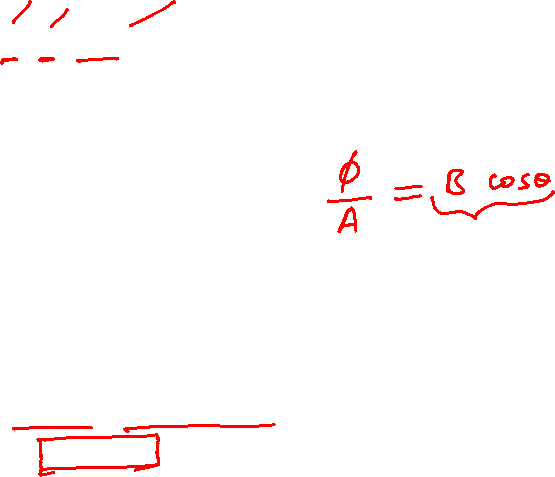 ϕ/A = B cosθ